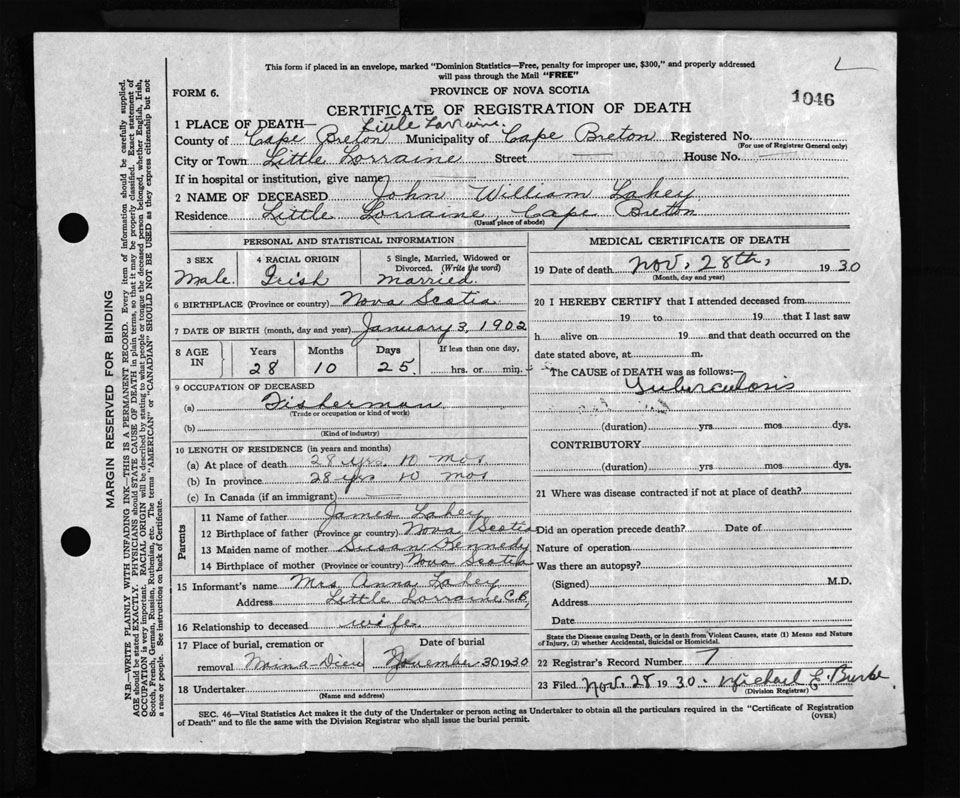 This form if placed in an envelope, marked "Dominion Statistics—Free, penalty for improper use, $300," and properly addressed
will pass through the Mail "FREE"
FORM 6.
PROVINCE OF NOVA SCOTIA
1046
CERTIFICATE OF REGISTRATION OF DEATH
1 PLACE OF DEATH— Little Lorraine.
County of Cape Breton Municipality of Cape Breton Registered No.
(For use of Registrar General only)
City or Town Little Lorraine Street — House No. —
If in hospital or institution, give name —
2 NAME OF DECEASED John William Lahey
Residence Little Lorraine, Cape Breton
(Usual place of abode)
PERSONAL AND STATISTICAL INFORMATION
3 SEX 4 RACIAL ORIGIN 5 Single, Married, Widowed or
Divorced. (Write the word)
Male. Irish Married.
6 BIRTHPLACE (Province or country) Nova Scotia
7 DATE OF BIRTH (month, day and year) January 3, 1902
8 AGE IN Years Months Days If less than one day,
28 10 25. hrs. or min.
9 OCCUPATION OF DECEASED
(a) Fisherman
(Trade or occupation or kind of work)
(b)
(Kind of industry)
10 LENGTH OF RESIDENCE (in years and months)
(a) At place of death 28 yrs. 10 mos
(b) In province 28 yrs 10 mos
(c) In Canada (if an immigrant) —
Parents
11 Name of father James Lahey
12 Birthplace of father (Province or country) Nova Scotia
13 Maiden name of mother Susan Kennedy
14 Birthplace of mother (Province or country) Nova Scotia
15 Informant's name Mrs Anna Lahey
Address Little Lorraine, C.B,
16 Relationship to deceased wife
17 Place of burial, cremation or Date of burial
removal Main-a-Dieu November 30 1930
18 Undertaker
(Name and address)
MEDICAL CERTIFICATE OF DEATH
19 Date of death Nov. 28th, 1930
(Month, day and year)
20 I HEREBY CERTIFY that I attended deceased from
19 to 19 that I last saw
h alive on 19 and that death occurred on the
date stated above, at m.
The CAUSE of DEATH was as follows:—
Tuberculosis
(duration) yrs. mos. dys.
CONTRIBUTORY
(duration) yrs. mos. dys.
21 Where was disease contracted if not at place of death?
Did an operation precede death? Date of
Nature of operation
Was there an autopsy?
(Signed) M.D.
Address
Date
State the Disease causing Death, or in death from Violent Causes, state (1) Means and Nature
of Injury, (2) whether Accidental, Suicidal or Homicidal.
22 Registrar's Record Number 7
23 Filed Nov. 28 1930. Michael E. Burke
(Division Registrar)
SEC. 46—Vital Statistics Act makes it the duty of the Undertaker or person acting as Undertaker to obtain all the particulars required in the "Certificate of Registration
of Death" and to file the same with the Division Registrar who shall issue the burial permit.
(OVER)
MARGIN RESERVED FOR BINDING
N.B.—WRITE PLAINLY WITH UNFADING INK—THIS IS A PERMANENT RECORD. Every item of information should be carefully supplied.
AGE should be stated EXACTLY. PHYSICIANS should STATE CAUSE OF DEATH in plain terms, so that it may be properly classified. Exact statement of
OCCUPATION is very important. RACIAL ORIGIN will be described by stating to what people or tongue the deceased person belonged, whether English, Irish,
Scotch, French, German, Russian, Ruthenian, etc. The terms "AMERICAN" or "CANADIAN" SHOULD NOT BE USED as they express citizenship but not
a race or people. See instructions on back of Certificate.